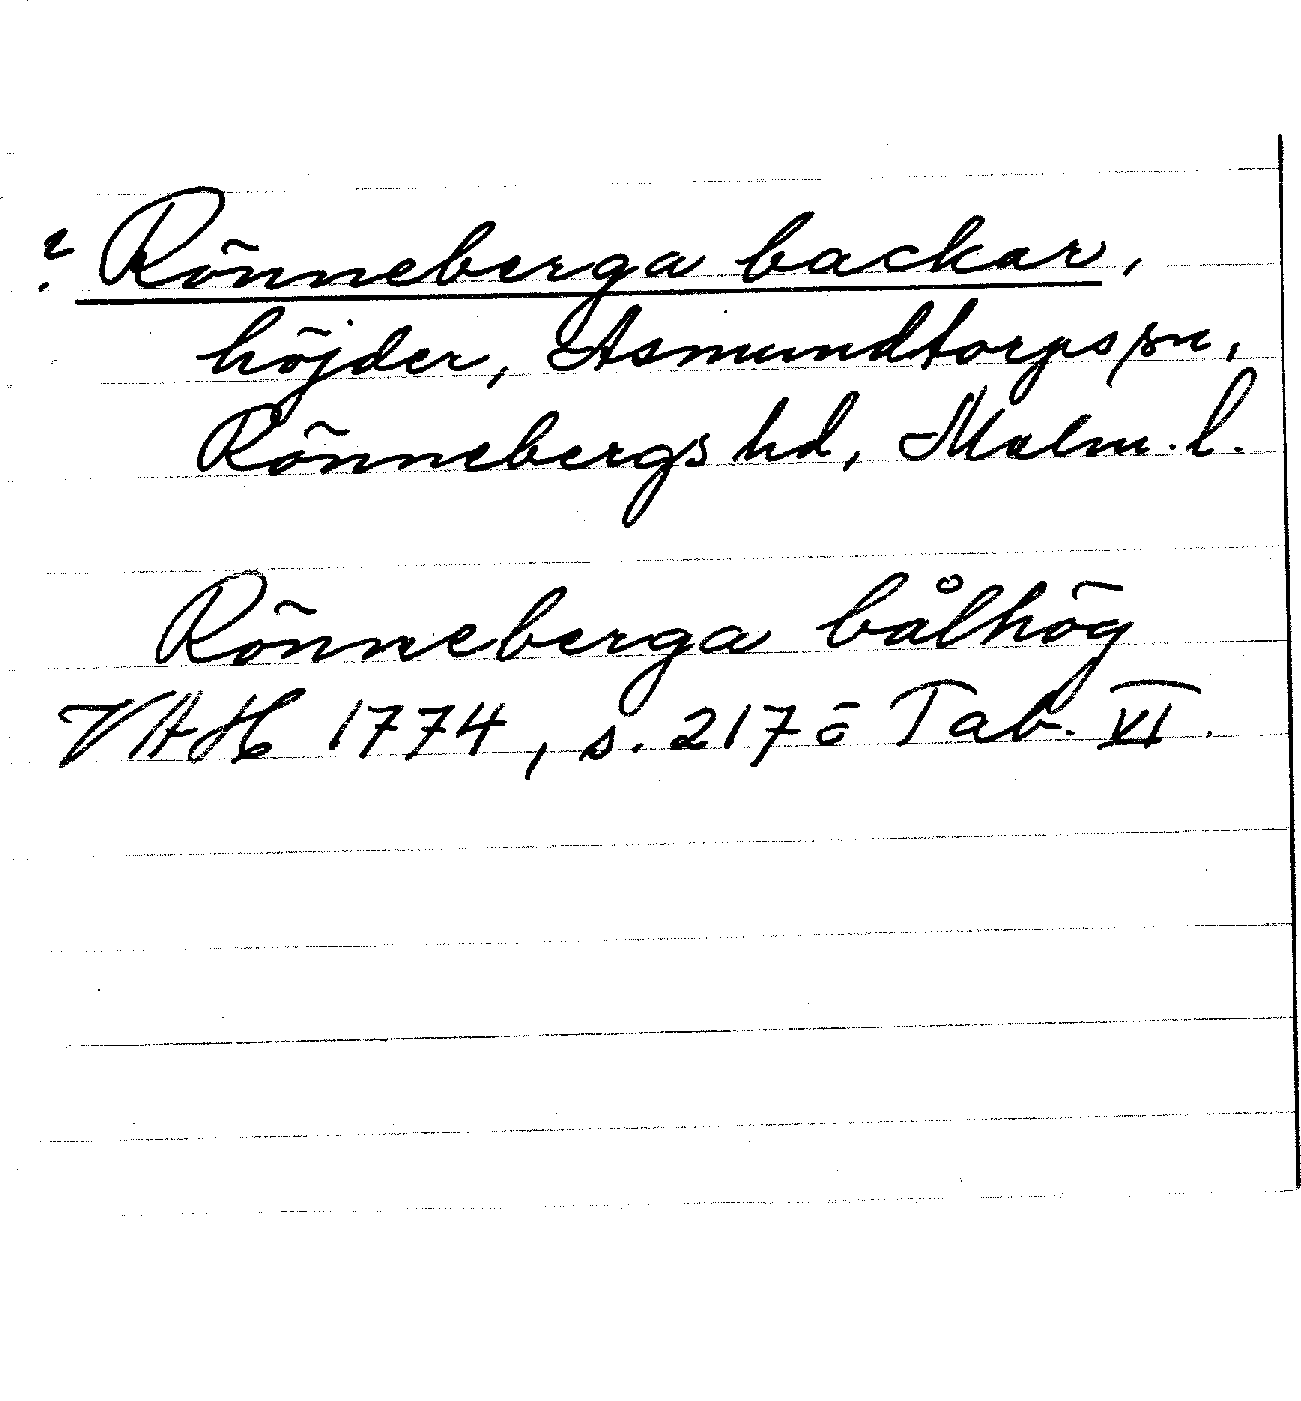 ? Rönneberga backar,
höjder, Asmundtorps sn,
Rönnebergs hd, Malm. l.
Rönneberga bålhög
VAH 1774, s. 217 ō Tab. VI.